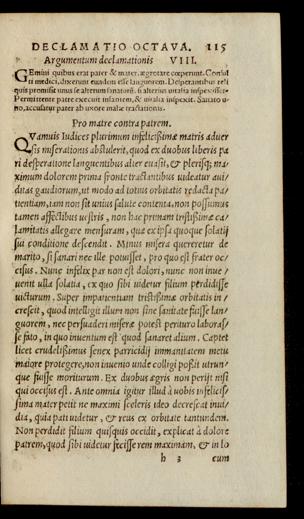 DECLAMATIO OCTAVA. 115
Argumentum declamationis VIII.
GEmini quibus erat pater & mater, ægrotare cœperunt. Consul
ti medici, dixerunt eundem esse languorem. Desperantibus reli
quis promisit unus se alterum sanaturū, si alterius uitalia inspexisset.
Permittente patre execuit infantem, & uitalia inspexit. Sanato u/
no, accusatur pater ab uxore malæ tractationis.
Pro matre contra patrem.
QVamuis Iudices plurimum infelicissimæ matris aduer
sis miserationis abstulerit, quod ex duobus liberis pa
ri desperatione languentibus alter euasit, & plerisq; ma/
ximum dolorem prima fronte tractantibus uideatur aui/
ditas gaudiorum, ut modo ad totius orbitatis redacta pa/
tientiam, tam non sit unius salute contenta, non possumus
tamen affectibus uestris, non hac primam tristissimæ ca/
lamitatis allegare mensuram, qua ex ipsa quoque solatij
sui conditione descendit. Minus misera quereretur de
marito, si sanari nec ille potuisset, pro quo est frater oc/
cisus. Nunc infelix par non est dolori, nunc non inue/
uenit ulla solatia, ex quo sibi uidetur filium perdidisse
uicturum. Super impatientiam tristissimæ orbitatis in/
crescit, quod intelligit illum non sine sanitate fuisse lan/
guorem, nec persuaderi miseræ potest perituro laboras/
se fato, in quo inuentum est quod sanaret alium. Captet
licet crudelissimus senex parricidij immanitatem metu
maiore protegere, non inuenio unde colligi possit utrun/
que fuisse moriturum. Ex duobus ægris non perijt nisi
qui occisus est. Ante omnia igitur illud à uobis infelicis/
sima mater petit ne maximi sceleris ideo decrescat inui/
dia, quia pati uidetur, & reus ex orbitate tantundem.
Non perdidit filium quisquis occidit, explicat à dolore
patrem, quod sibi uidetur fecisse rem maximam, & in lo
h 3 cum